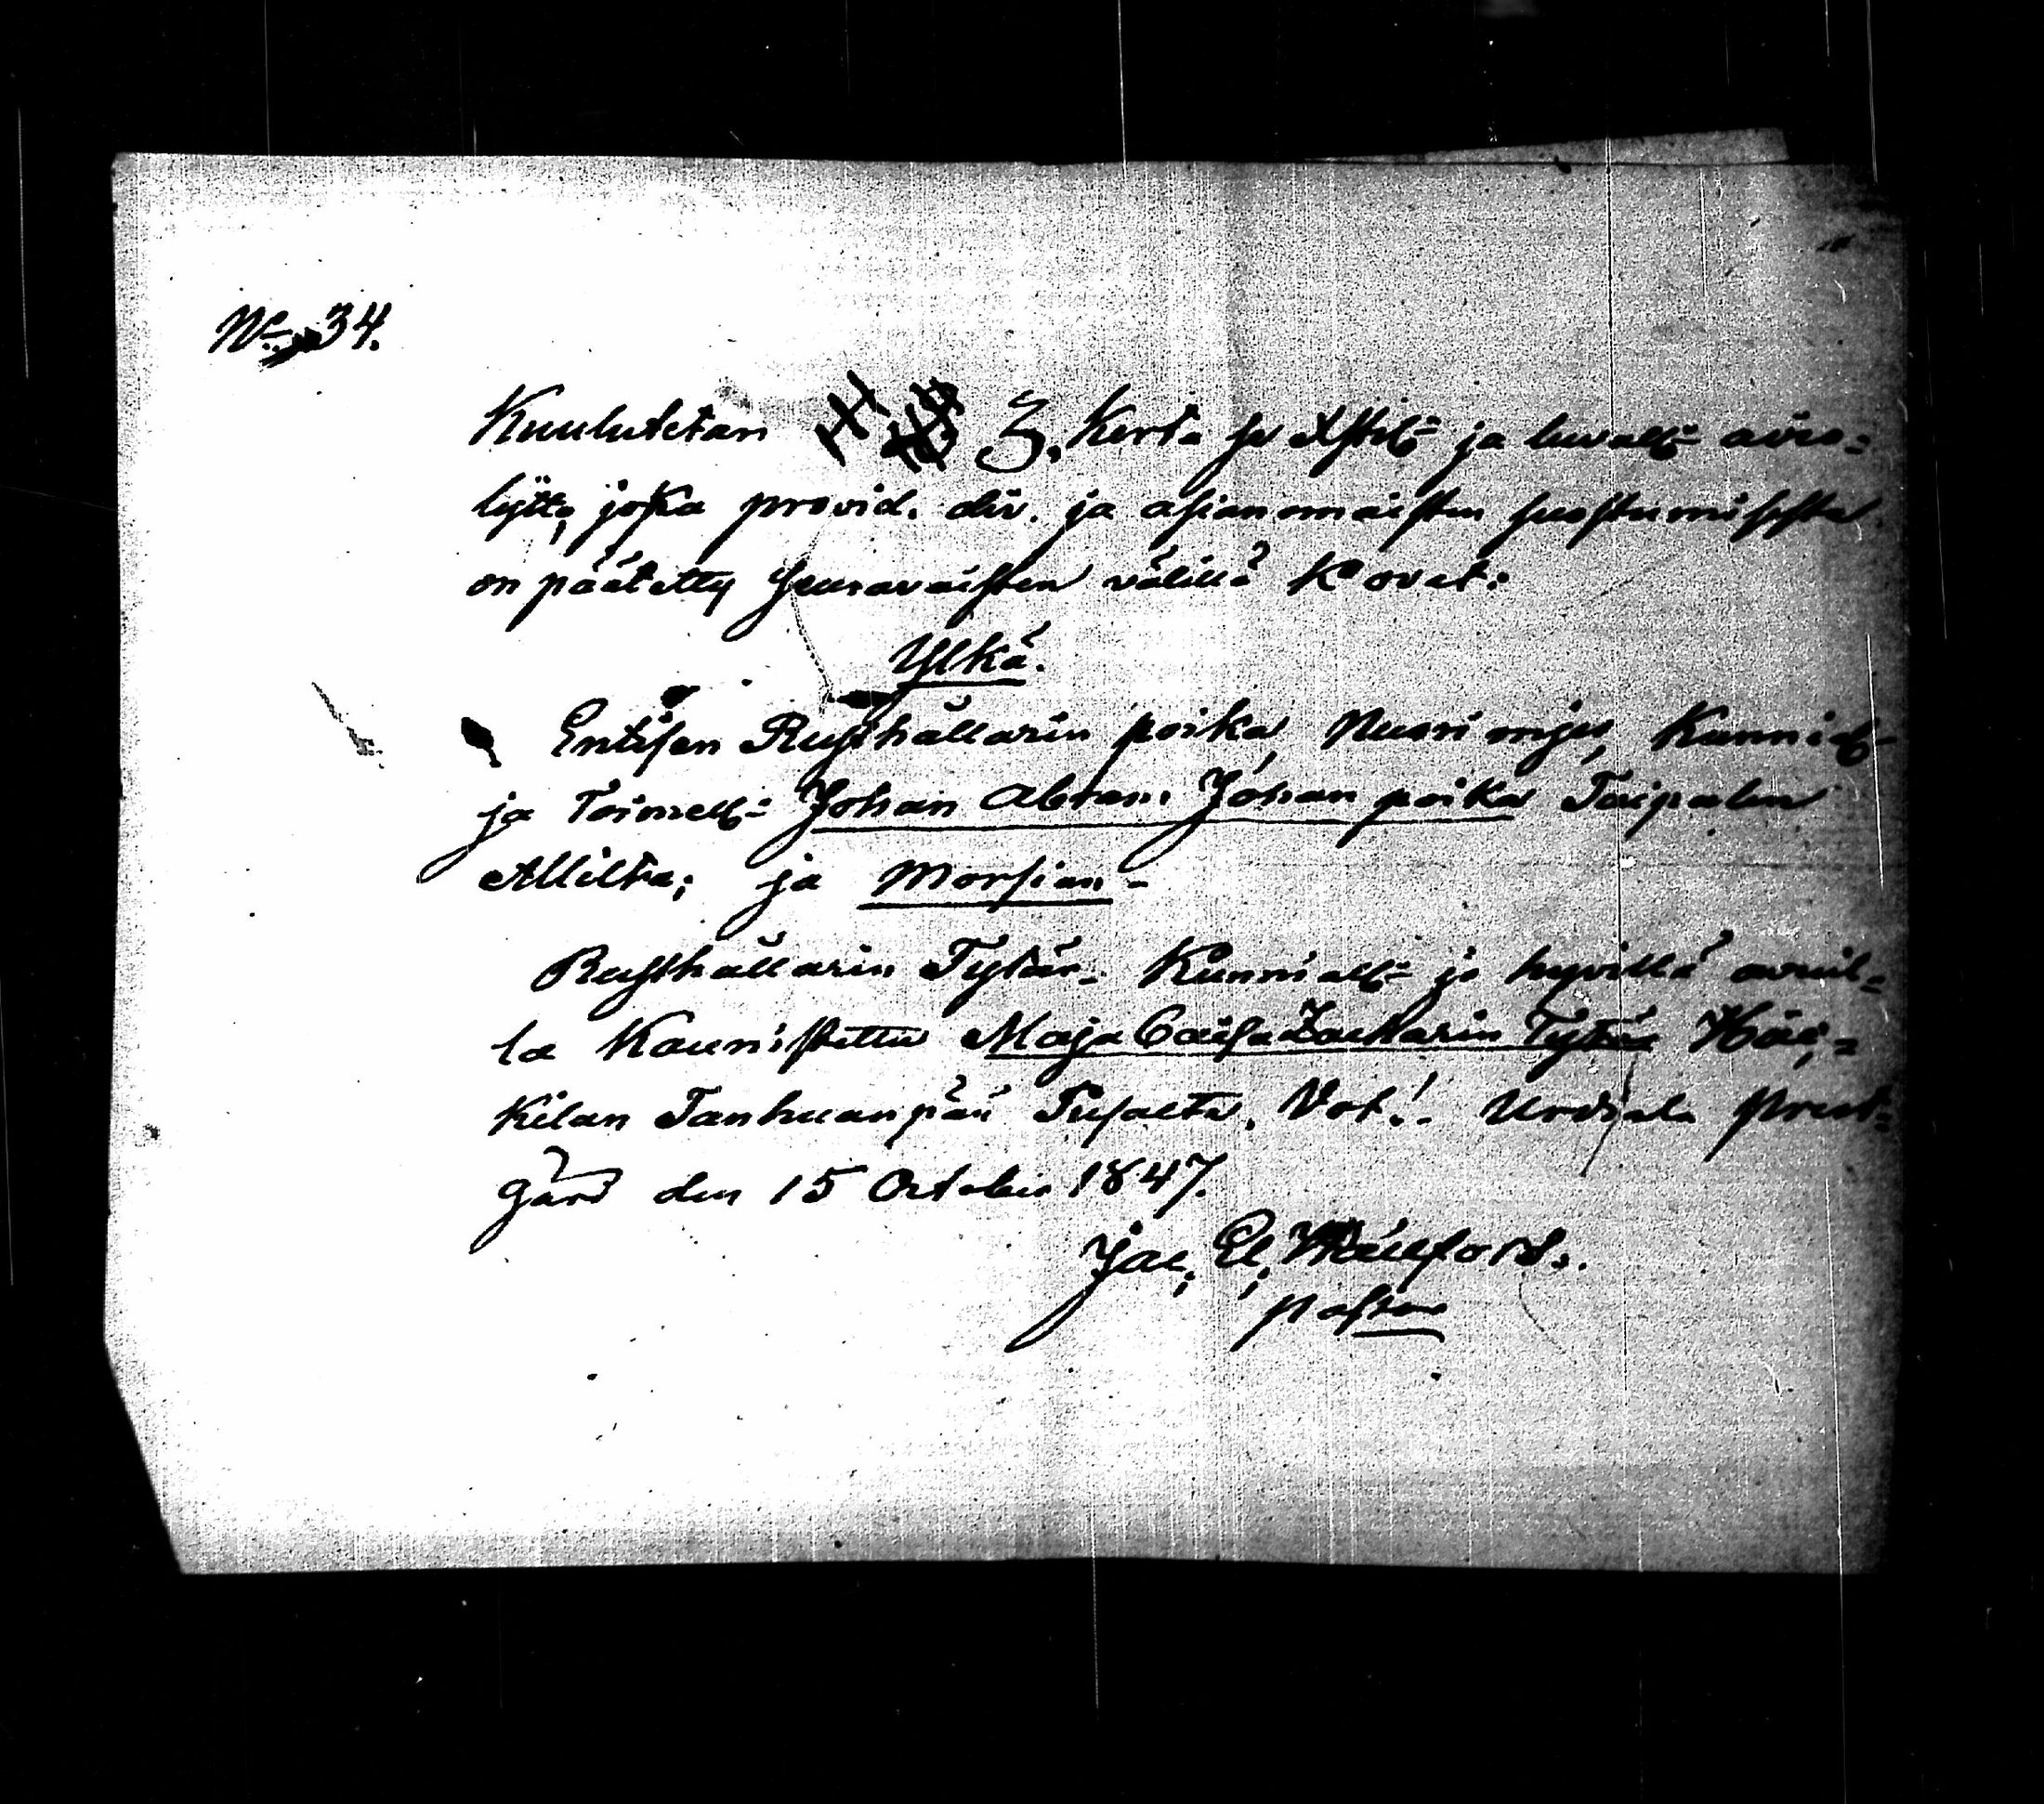 No 34.
Kuulutetan 3. Kerta se Xstil:n ja luvall:n avio=
lijtto, joka provid. div. ja asianomaisten suostumisesta
on päätetty seuravaisten välillä Kovat:
Ylkä.
Entisen Rusthållarin poika Nuori mjes, Kunniall:n
ja Toimell:n Johan Abram Johan poika Taipalen
Allilta; ja Morsian-
Rusthållarin Tytär. Kunniall:n ja hyvillä avuil=
la Kaunistettu Maja Caisa Zackarin Tytär
Kilan Tanhuanpää Pusalta. Vot!. Urdiala Prest=
gård den 15 Octobis 1847.
Jac. El. Wallford.
pastor